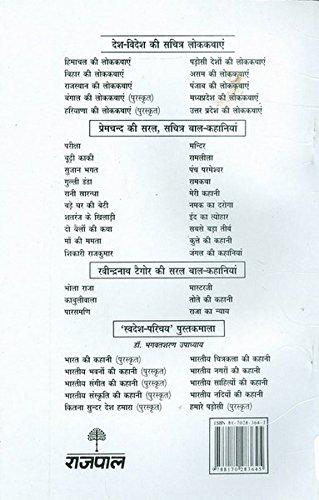 देश-विदेश की सचित्र लोककथाएं
हिमाचल की लोककथाएं
पड़ोसी देशों की लोककथाएं
बिहार की लोककथाएं
असम की लोककथाएं
राजस्थान की लोककथाएं
पंजाब की लोककथाएं
बंगाल की लोककथाएं (पुरस्कृत)
मध्यप्रदेश की लोककथाएं
हरियाणा की लोककथाएं (पुरस्कृत)
उत्तर प्रदेश की लोककथाएं
प्रेमचन्द की सरल, सचित्र बाल-कहानियां
परीक्षा
मन्दिर
बूढ़ी काकी
रामलीला
सुजान भगत
पंच परमेश्वर
गुल्ली डंडा
रामकथा
रानी सारन्धा
मेरी कहानी
बड़े घर की बेटी
नमक का दरोगा
शतरंज के खिलाड़ी
ईद का त्योहार
दो बैलों की कथा
सबसे बड़ा तीर्थ
माँ की ममता
कुत्ते की कहानी
शिकारी राजकुमार
जंगल की कहानियां
रवीन्द्रनाथ टैगोर की सरल बाल-कहानियां
भोला राजा
मास्टरजी
काबुलीवाला
तोते की कहानी
पारसमणि
राजा का न्याय
'स्वदेश-परिचय' पुस्तकमाला
डॉ. भगवतशरण उपाध्याय
भारत की कहानी (पुरस्कृत)
भारतीय चित्रकला की कहानी
भारतीय भवनों की कहानी (पुरस्कृत)
भारतीय नगरों की कहानी
भारतीय संगीत की कहानी (पुरस्कृत)
भारतीय साहित्यों की कहानी
भारतीय संस्कृति की कहानी (पुरस्कृत)
भारतीय नदियों की कहानी
कितना सुन्दर देश हमारा (पुरस्कृत)
हमारे पड़ोसी (पुरस्कृत)
राजपाल
ISBN 81-7028-364-7
9788170283645